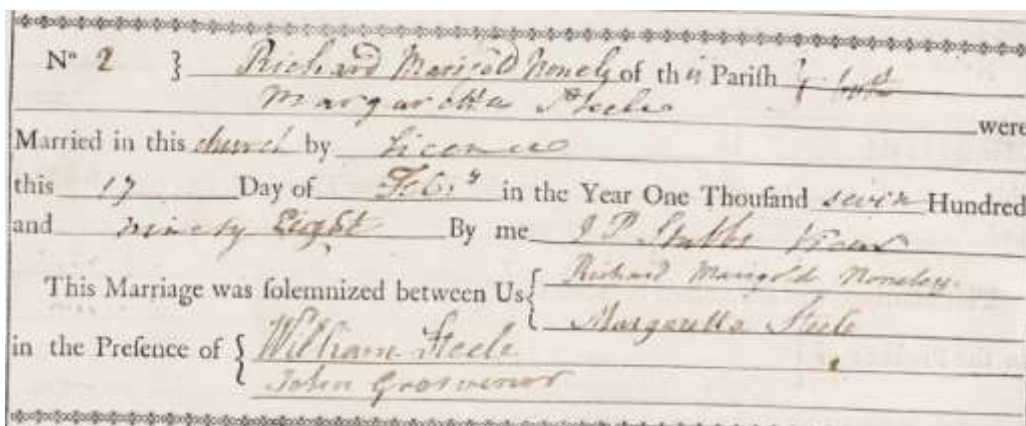 Nº 2 } Richard Marigold Nonely of this Parish }
Margaretta Steele were
Married in this church by Licence
this 17 Day of Feb.y in the Year One Thouſand seven Hundred
and ninety Eight By me J P Stubbs Vicar
This Marriage was ſolemnized between Us { Richard Marigold Noneley.
Margaretta Steele
in the Preſence of { William Steele
John Grosvenor